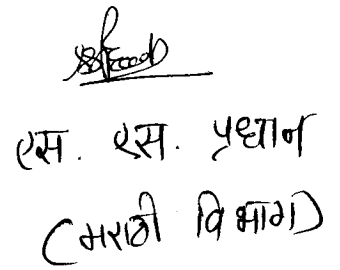 एस. एस. प्रधान
(मराठी विभाग)